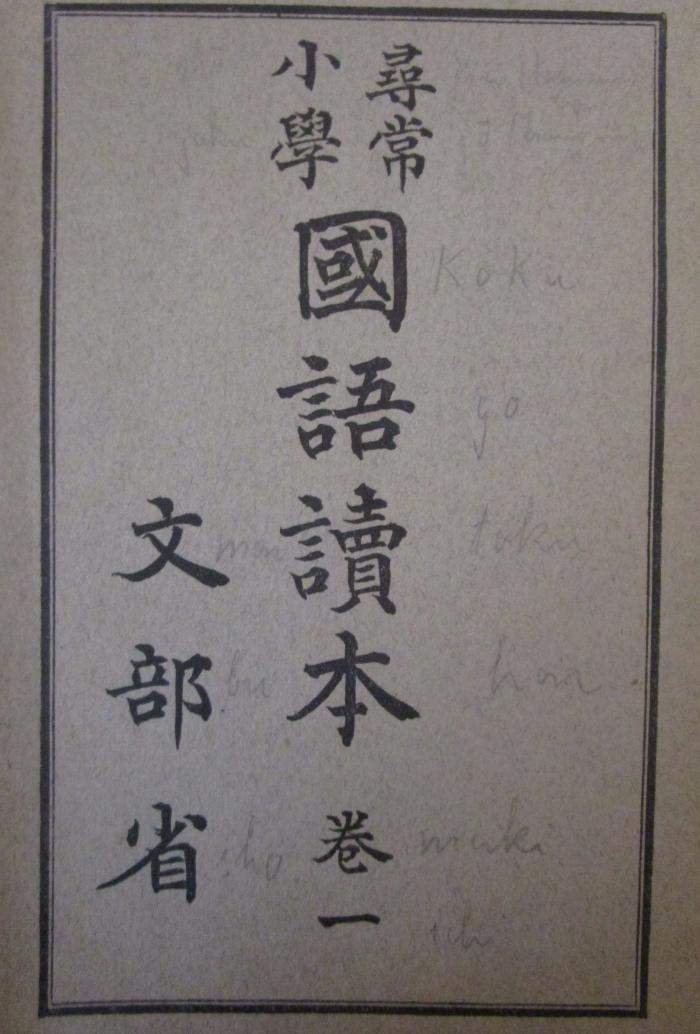 尋常
小學
國語讀本 卷一
文部省
Koku
go
toku
hon
maki
mon
bu
sho